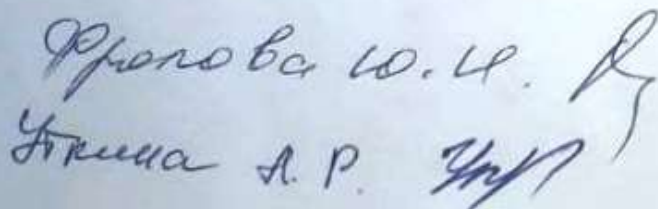 Фролова Ю.И.
Уткина А.Р.